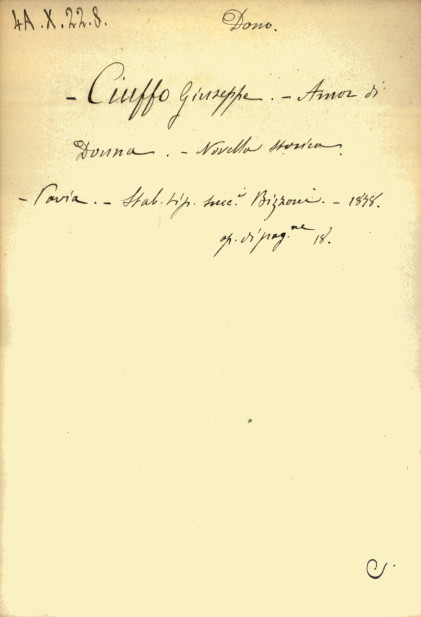 4A.X.22.8. Dono.
- Ciuffo Giuseppe. - Amor di
Donna. - Novella storica.
- Pavia. - Stab. tip. succ.i Bizzoni. - 1878.
op. di pag.ne 18.
C.